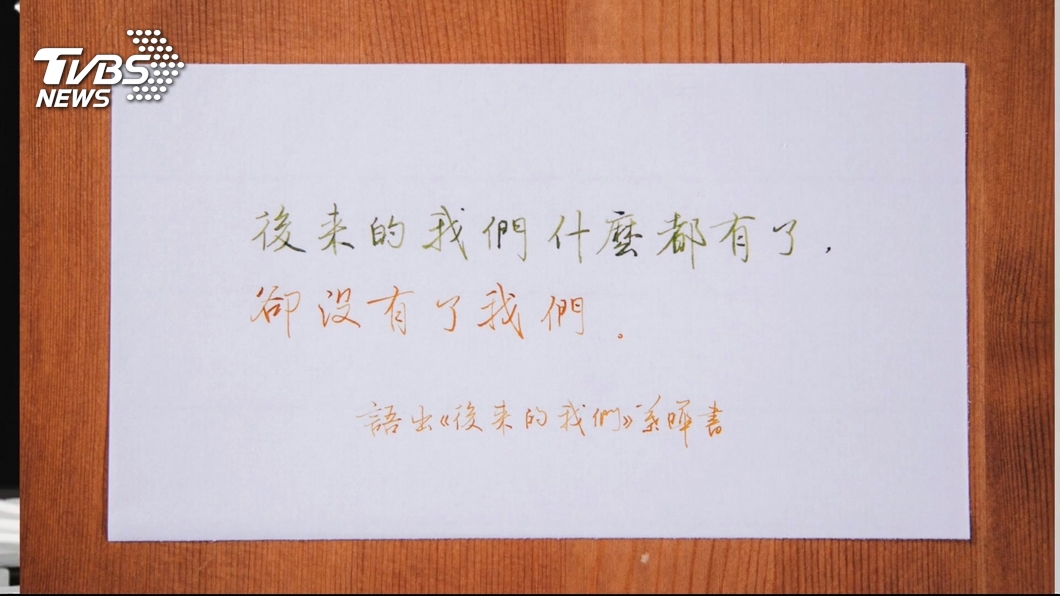 TVBS
NEWS
後来的我們什麼都有了,
卻没有了我們。
語出《後来的我們》 暉書